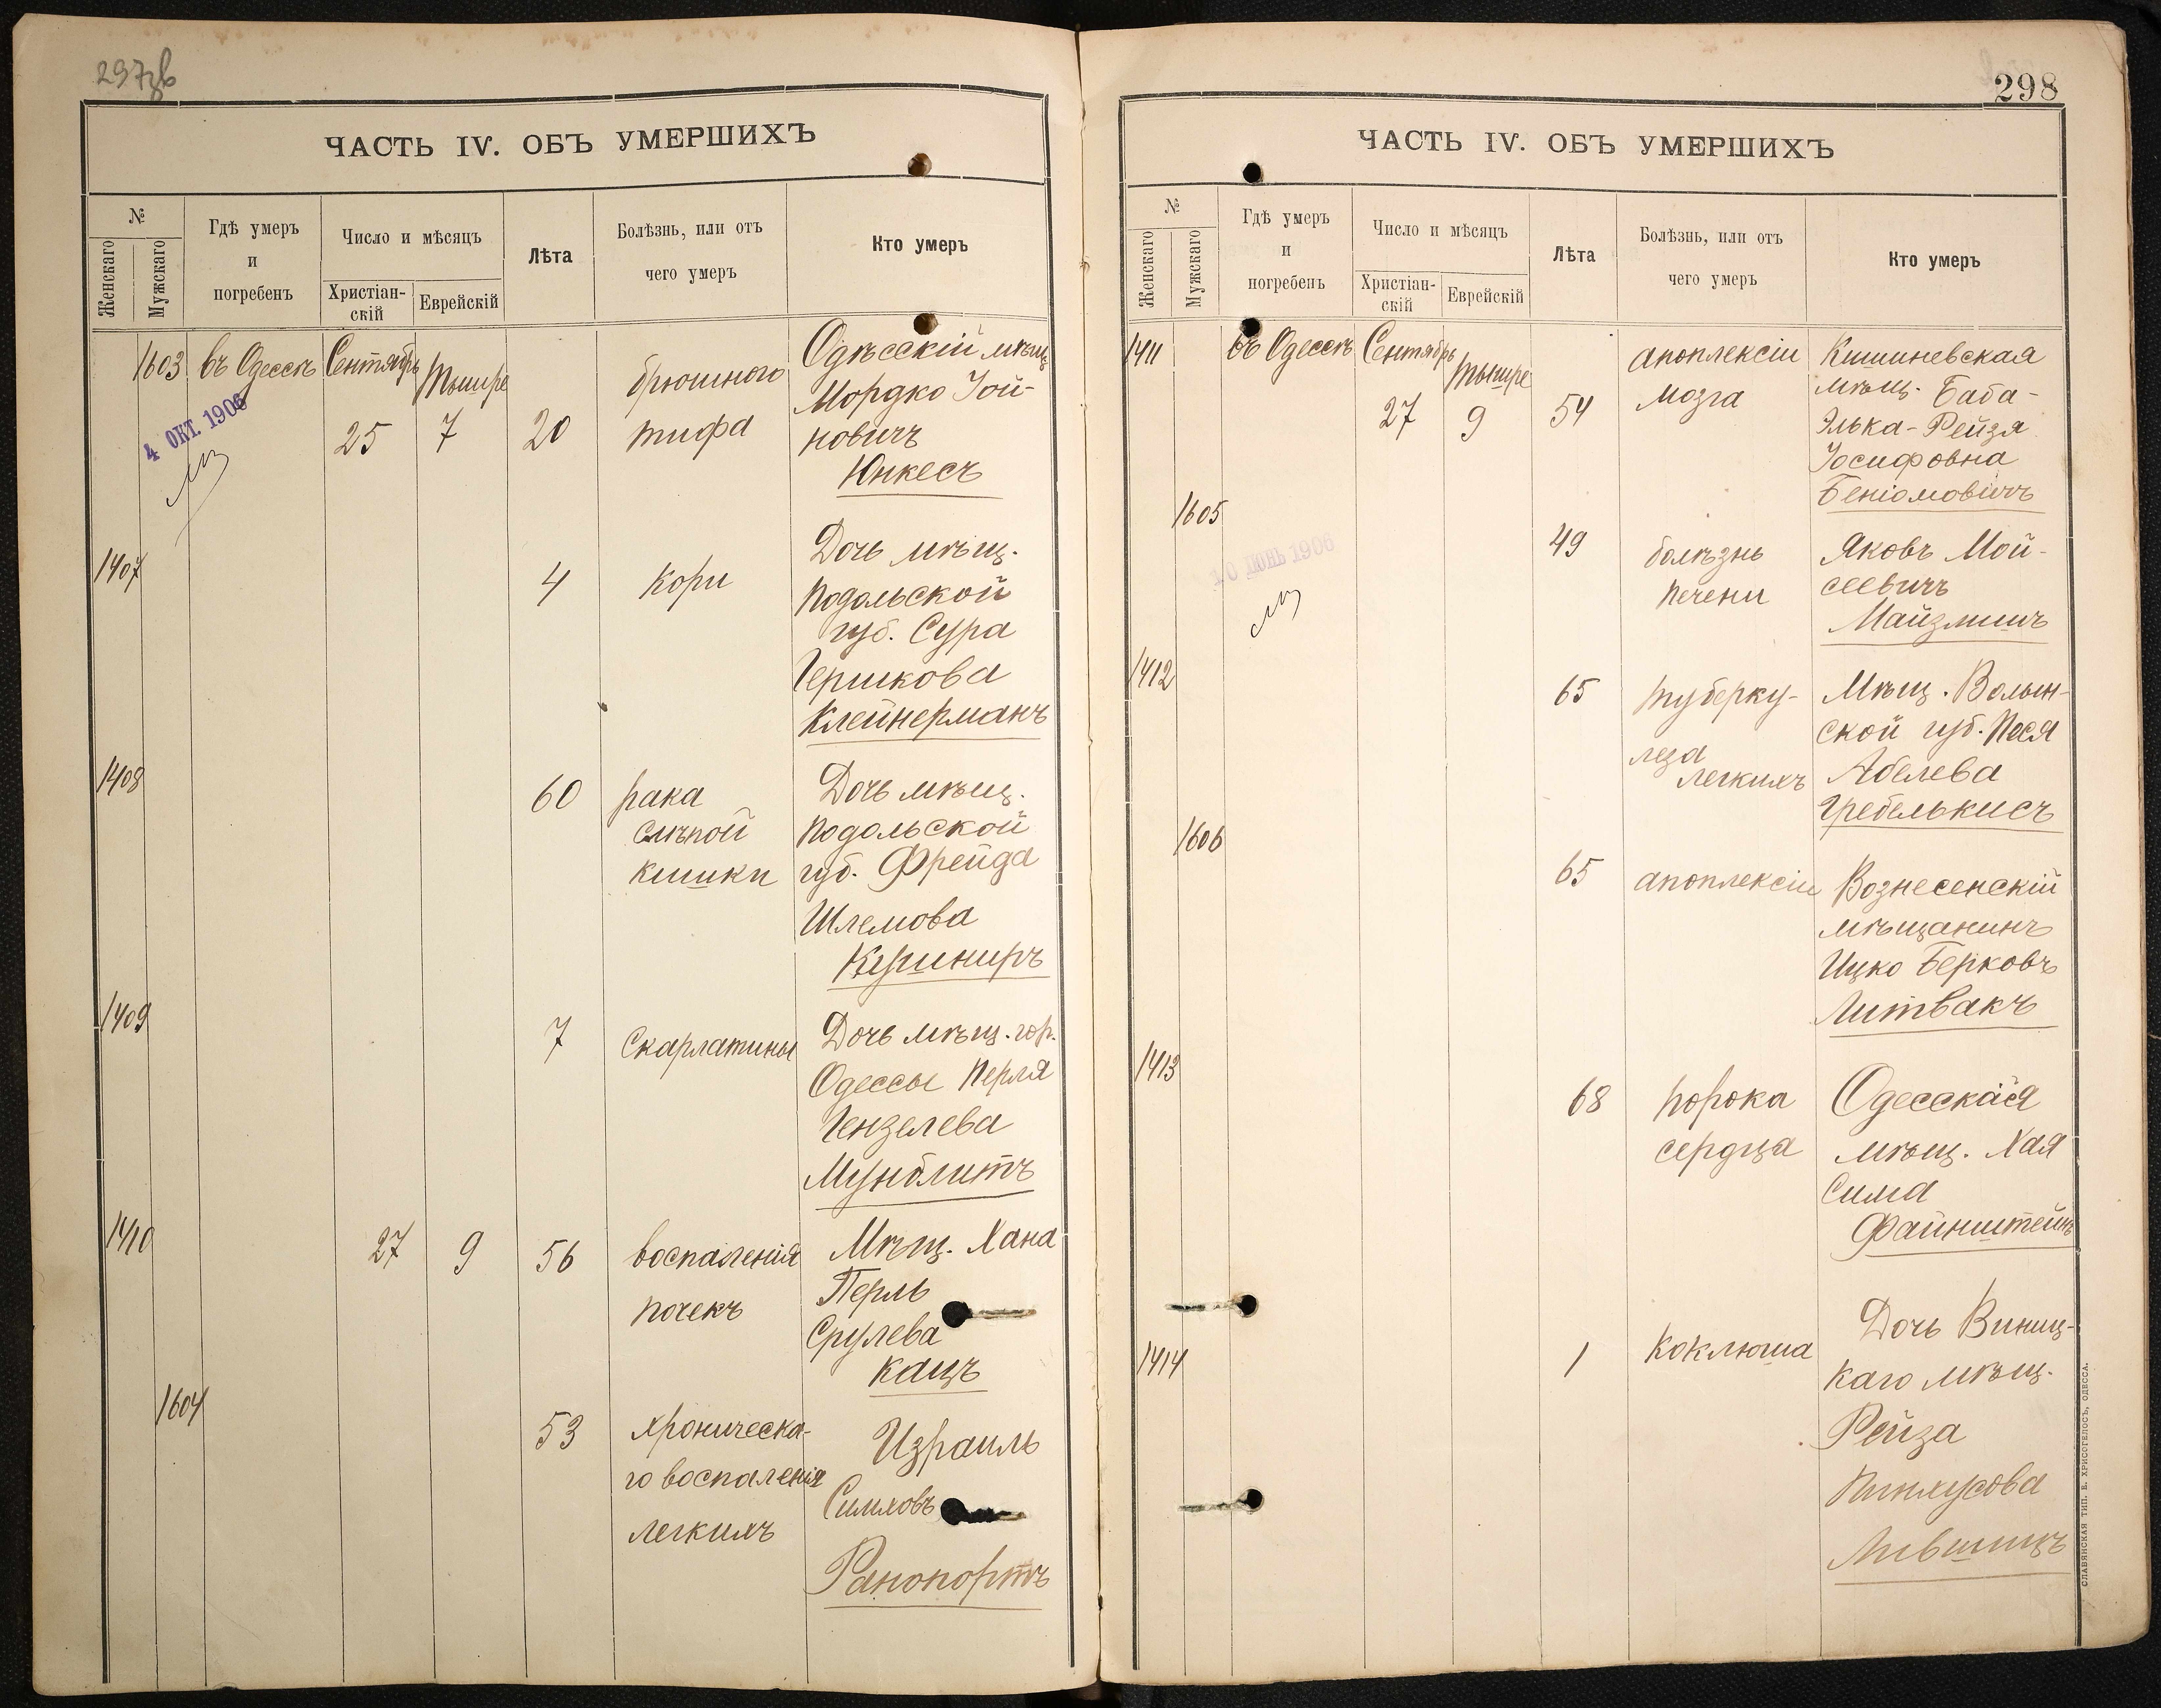 297об
ЧАСТЬ IV. ОБЪ УМЕРШИХЪ
№
Женскаго
Мужскаго
Гдѣ умеръ
и
погребенъ
Число и мѣсяцъ
Христіан-
скій
Еврейскій
Лѣта
Болѣзнь, или отъ
чего умеръ
Кто умеръ
1603
въ Одессѣ
Сентябрь
25
Тышре
7
20
брюшного
тифа
Одѣсскій мѣщ
Мордко Іой-
новичъ
Юнкесъ
4 ОКТ. 1906
1407
4
кори
Дочь мѣщ.
Подольской
губ. Сура
Гершкова
Клейнерманъ
1408
60
рака
слѣпой
кишки
Дочь мѣщ.
Подольской
губ. Фрейда
Шлемова
Кушниръ
1409
7
Скарлатины
Дочь мѣщ. гор.
Одессы Перля
Гензелева
Мунблитъ
1410
27
9
56
воспаленія
почекъ
Мѣщ. Хана
Перль
Срулева
Кацъ
1604
53
хроническа-
го воспаленія
легкихъ
Израиль
Симховъ
Рапопортъ
298
ЧАСТЬ IV. ОБЪ УМЕРШИХЪ
№
Женскаго
Мужскаго
Гдѣ умеръ
и
погребенъ
Число и мѣсяцъ
Христіан-
скій
Еврейскій
Лѣта
Болѣзнь, или отъ
чего умеръ
Кто умеръ
1411
въ Одессѣ
Сентябрь
27
Тышре
9
54
апоплексіи
мозга
Кишиневская
мѣщ. Баба-
Элька-Рейзя
Іосифовна
Беніомовичъ
1605
10 ІЮНЬ 1906
49
болѣзнь
печени
Яковъ Мой-
сеевичъ
Майзлишъ
1412
65
туберку-
леза
легкихъ
Мѣщ. Волын-
ской губ. Песя
Абелева
Гребелькисъ
1606
65
апоплексіи
Вознесенскій
мѣщанинъ
Ицко Берковъ
Литвакъ
1413
68
порока
сердца
Одесская
мѣщ. Хая
Сима
Файнштейнъ
1414
1
коклюша
Дочь Виниц-
каго мѣщ.
Рейза
Пинхусова
Лившицъ
СЛАВЯНСКАЯ ТИП. Е. ХРИСОГЕЛОСЪ, ОДЕССА.